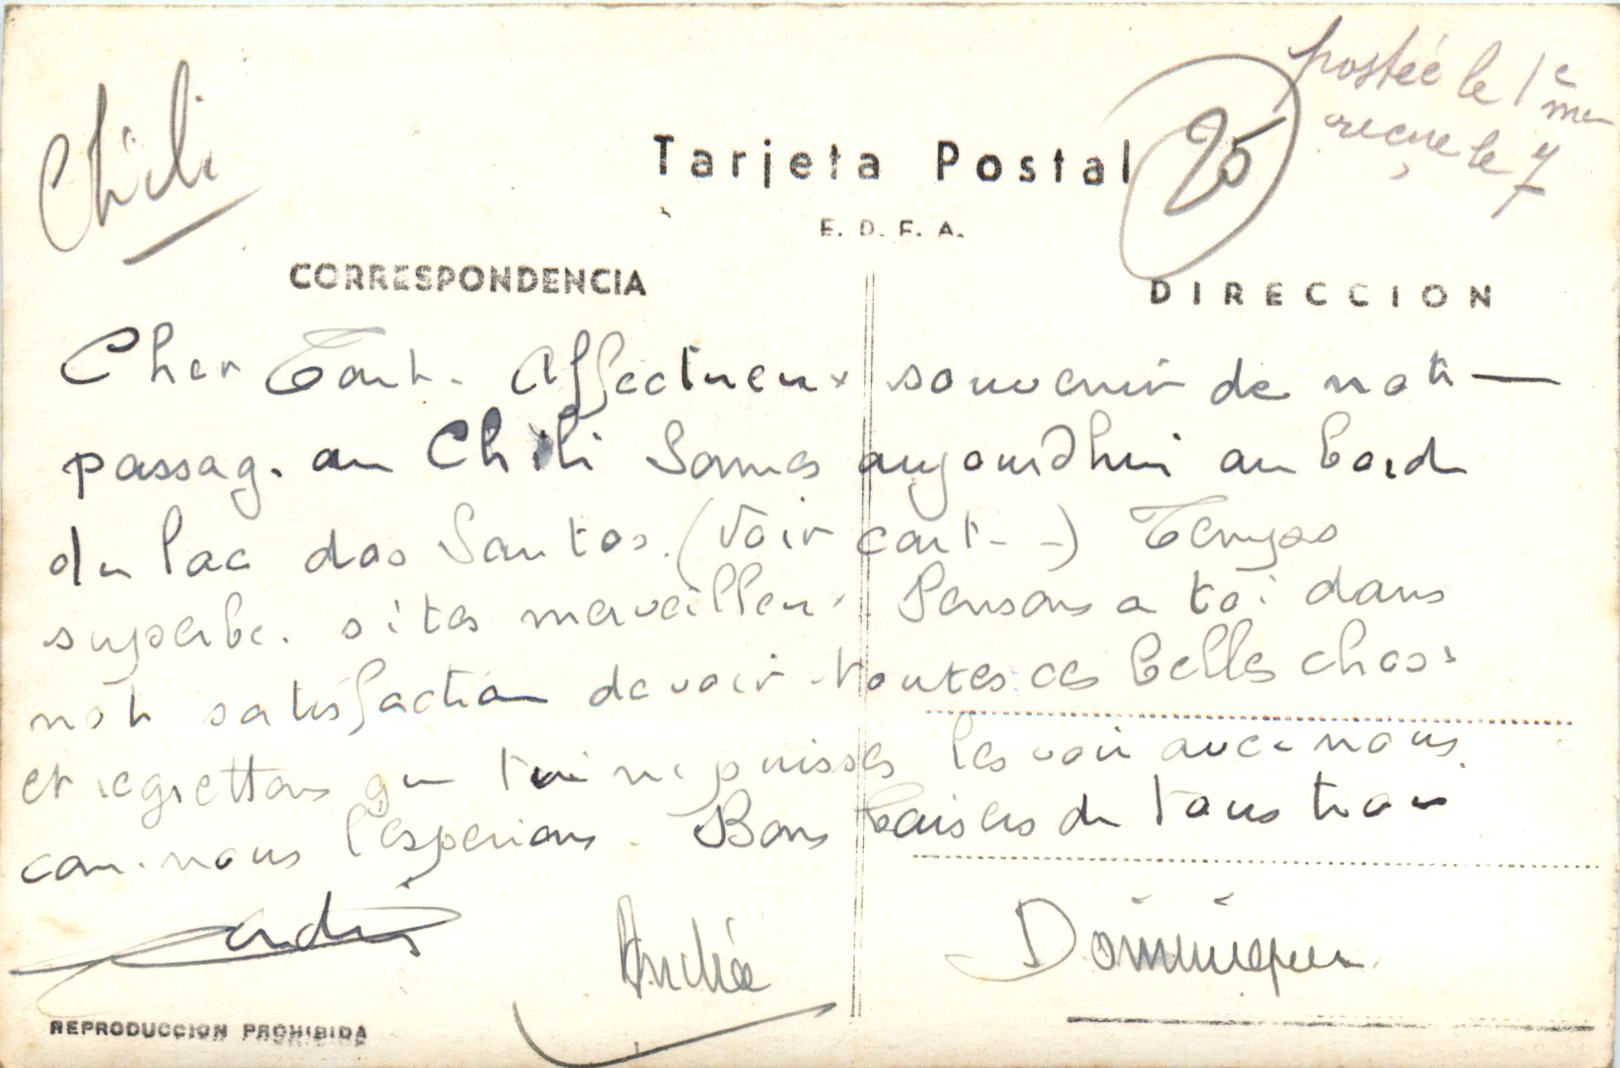 Chili
postée le 1e
reçue le 7
25
Tarjeta Postal
E. D. F. A.
CORRESPONDENCIA
DIRECCION
Cher Affectueux souvenir de notr
passag. au Chili Sommes aujourdhui au bord
du lac dos Santos. (Voir cart--) Temps
superbe. sites merveilleux. Pensons a toi dans
notr satisfaction de voir toutes ces belles chos
et regrettons qu tu ne puisses les voir avec nous
com. nous l'esperions. Bons baisers de tous trois
Andrée
Dominique
REPRODUCCION PROHIBIDA